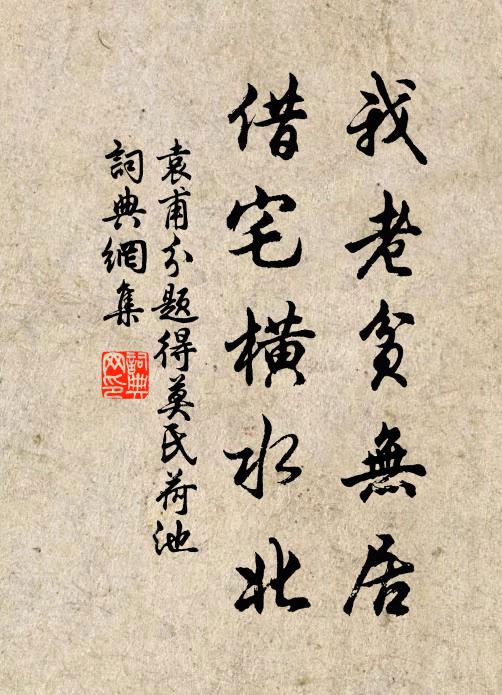 我老貧無居
借宅橫水北
袁甫分題得莫氏荷池
詞典網集
詞典网印